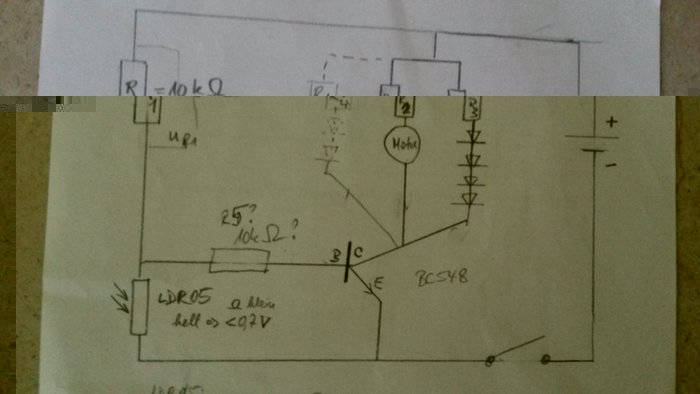 R1 = 10 kΩ
UR1
R4
R2
R3
Motor
+
-
R5?
10kΩ?
B C
E
BC548
LDR05 Ω klein
hell => <0,7V